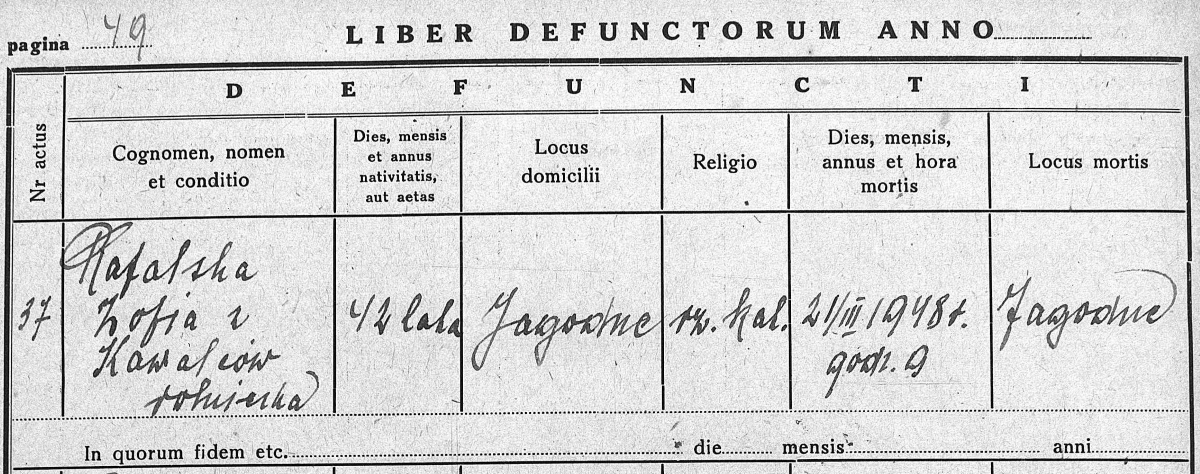 pagina 49
LIBER DEFUNCTORUM ANNO
DEFUNCTI
Nr actus
Cognomen, nomen
et conditio
Dies, mensis
et annus
nativitatis,
aut aetas
Locus
domicilii
Religio
Dies, mensis,
annus et hora
mortis
Locus mortis
37
Rafalska
Zofia z
Kawalców
rolniczka
42 lata
Jagodne
rz. kat.
21/III 1948 r.
godz. 9
Jagodne
In quorum fidem etc. die mensis anni